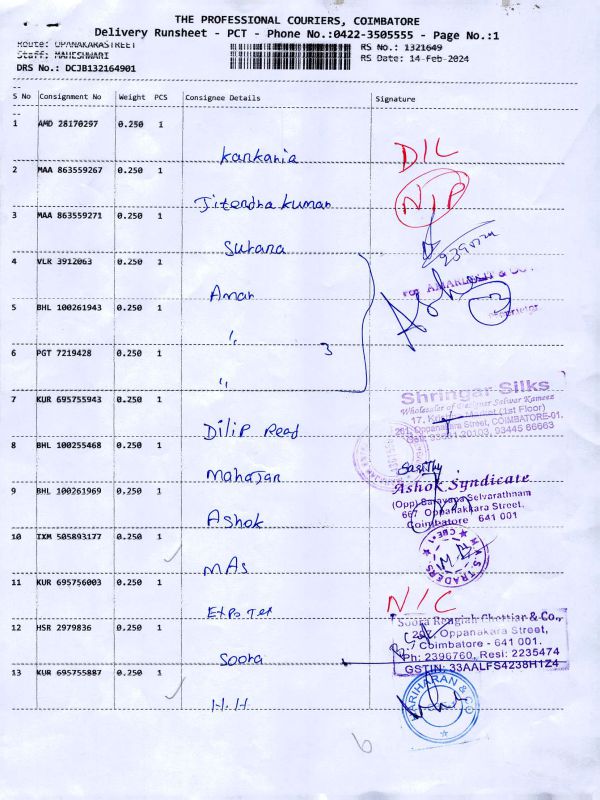 THE PROFESSIONAL COURIERS, COIMBATORE
Delivery Runsheet - PCT - Phone No.:0422-3505555 - Page No.:1
Route: OPANAKARASTREET
RS No.: 1321649
Staff: MAHESHWARI
RS Date: 14-Feb-2024
DRS No.: DCJB132164901
S No Consignment No Weight PCS Consignee Details Signature
1 AMD 28170297 0.250 1
Kankania DIL
2 MAA 863559267 0.250 1
Jitendra kumar N/P
3 MAA 863559271 0.250 1
Surana
4 VLR 3912063 0.250 1
Aman
5 BHL 100261943 0.250 1
"
6 PGT 7219428 0.250 1 3
"
7 KUR 695755943 0.250 1
Shringar Silks
Wholesaler of Designer Salwar Kameez
17, Krishna Market (1st Floor)
Oppanakara Street, COIMBATORE-01.
93444 66663
Dilip
8 BHL 100255468 0.250 1
Mahajan
9 BHL 100261969 0.250 1
Ashok Syndicate
(Opp) Saravana Selvarathnam
667 Oppanakkara Street,
Coimbatore 641 001
Ashok
10 IXM 505893177 0.250 1
MAS
TRADERS
CBE-1
11 KUR 695756003 0.250 1
Expo Tex N/C
12 HSR 2979836 0.250 1
Soora Rengiah Chettiar & Co.,
Oppanakara Street,
Coimbatore - 641 001.
Ph: 2396760, Resi: 2235474
GSTIN: 33AALFS4238H1Z4
Soora
13 KUR 695755887 0.250 1
HARIHARAN & CO
H.H
6